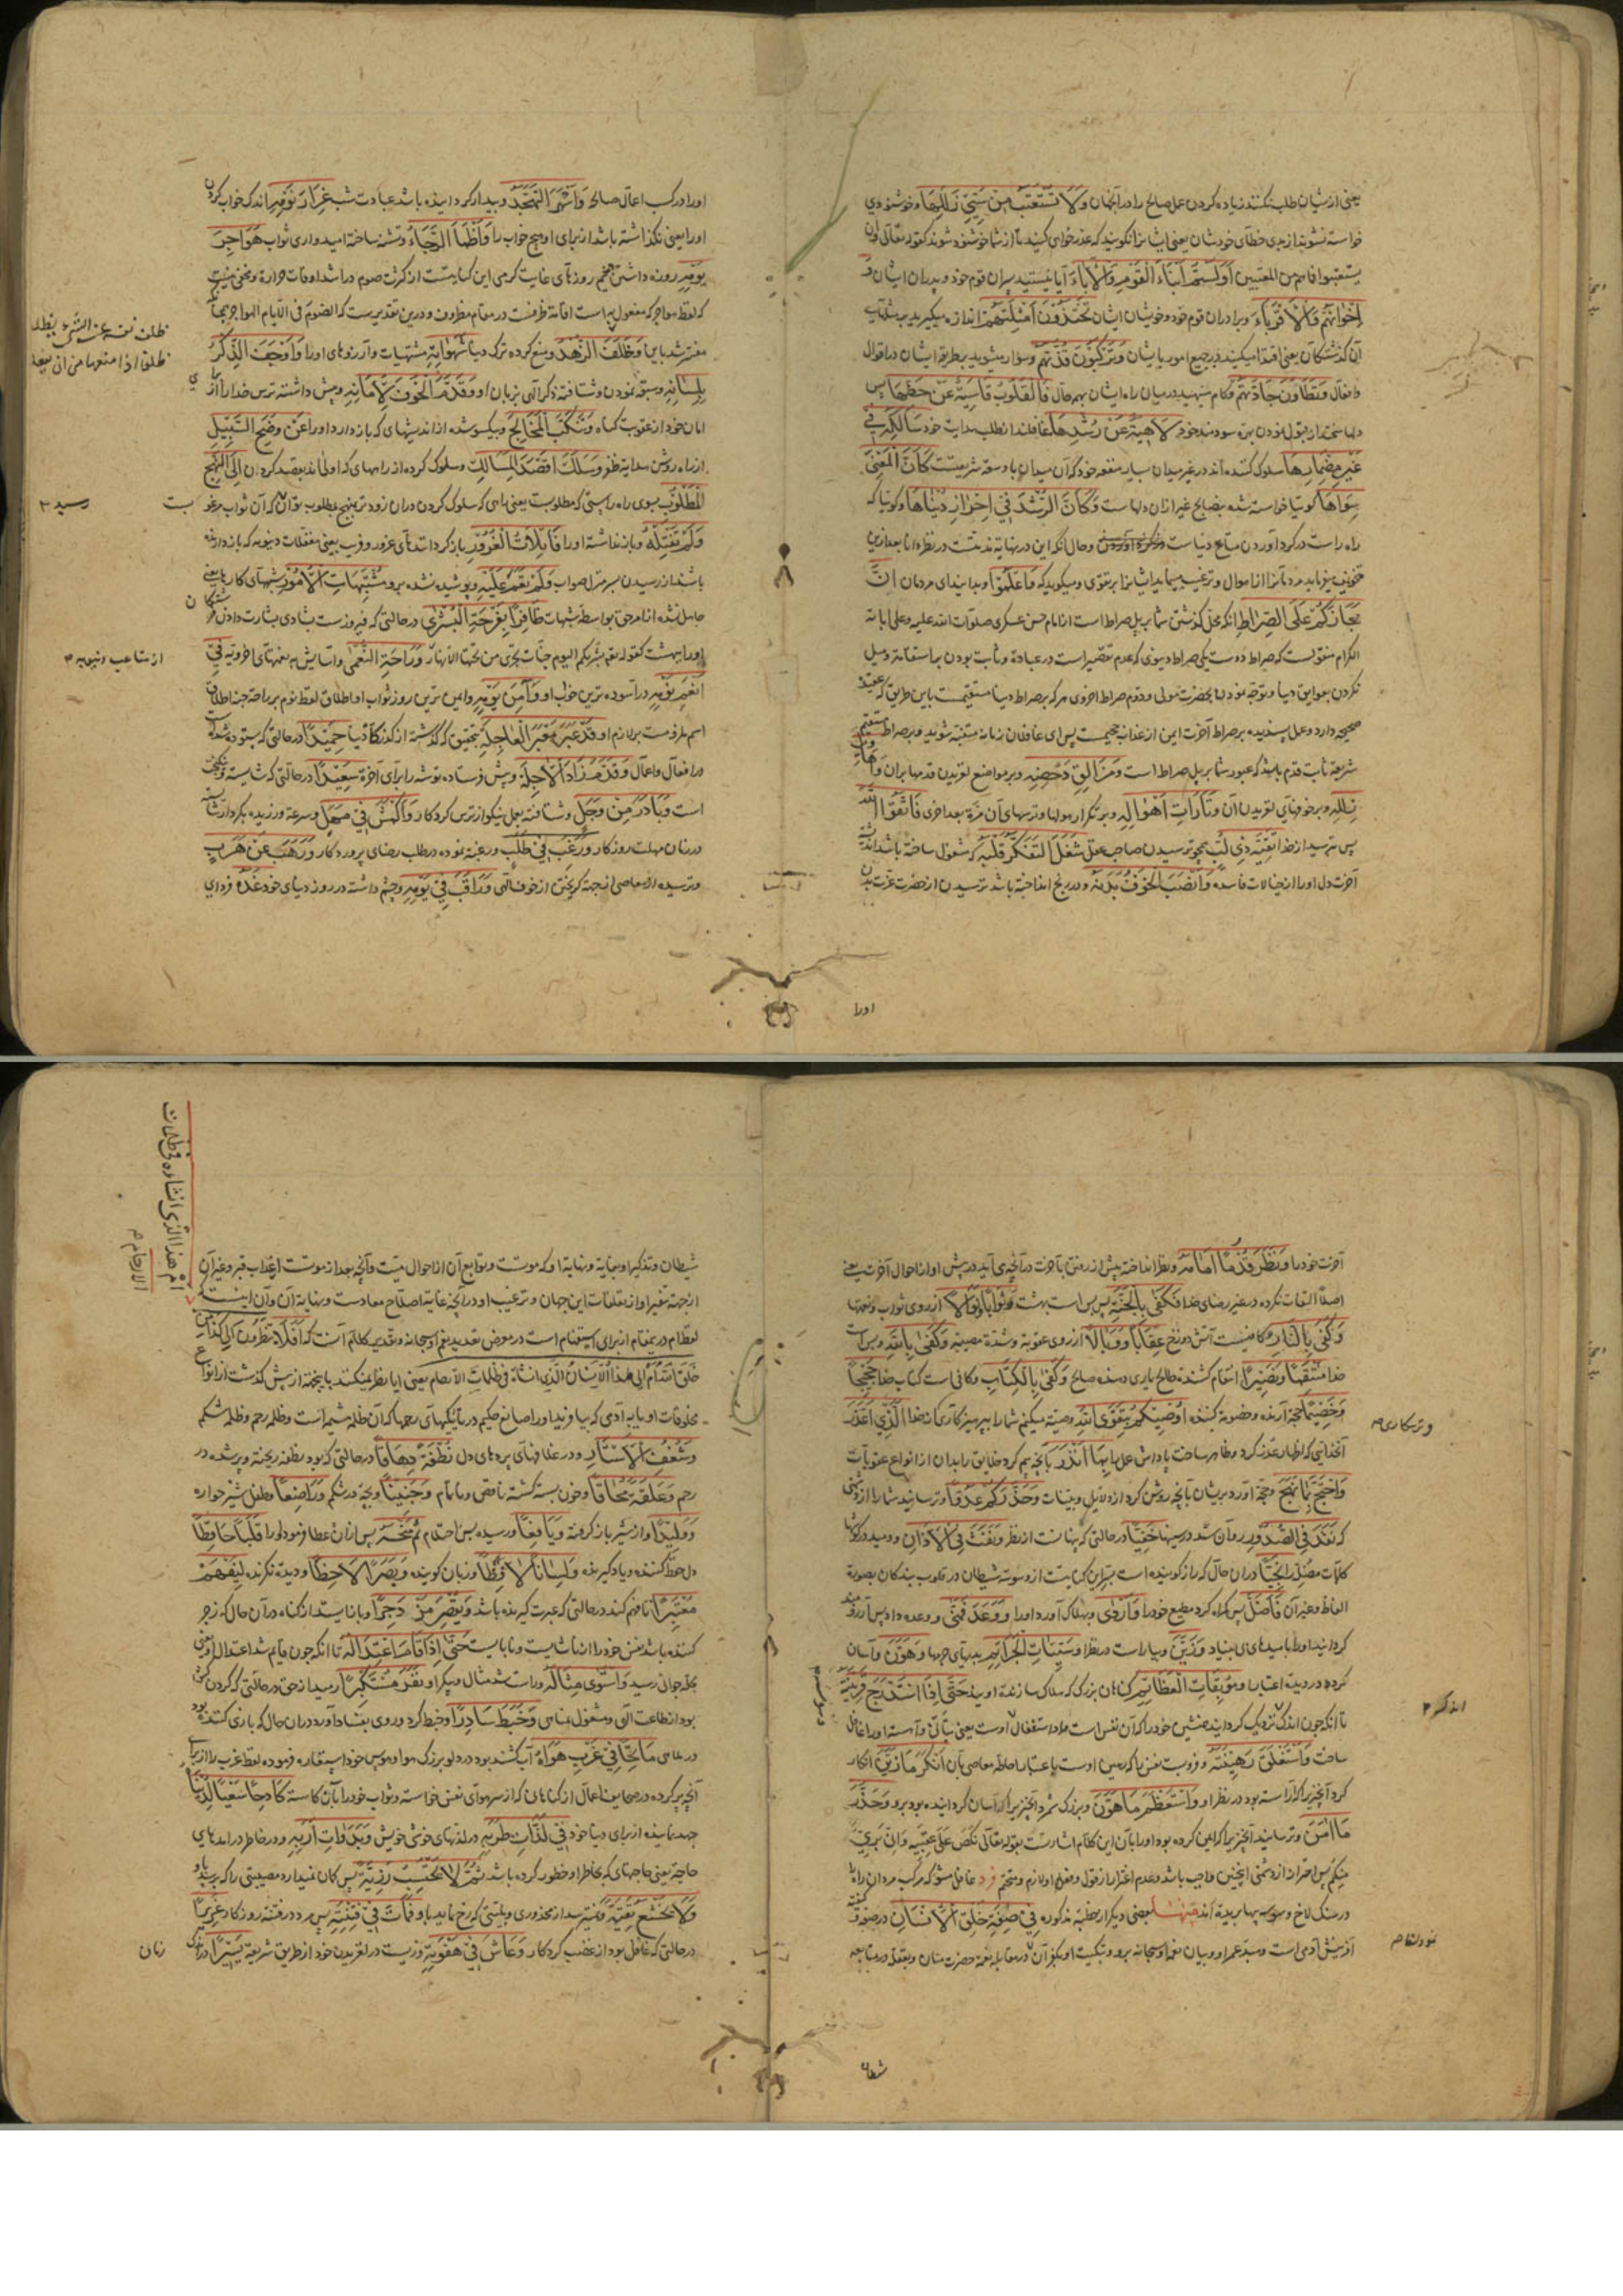 یعنی از ایشان طلب نکنند زیاده کردن عمل صالح را در آنجهان وَلَا تُسْتَعْتَبُ مِنْ سَیِّئِ زَلَلِهَا و خوشنودی
خواسته نشوند از بدی خطای خودشان یعنی ایشانرا نکویند که عذر خواهی کنید تا از شما خوشنود شوند کقوله تعالی و ان
یستعتبوا فما هم من المعتبین أَوَلَسْتُمْ أَبْنَاءَ الْقَوْمِ وَالْآبَاءَ آیا نیستید پسران قوم خود و پدران ایشان وَ
إِخْوَانَهُمْ وَالْأَقْرِبَاءَ و برادران قوم خود و خویشان ایشان تَحْتَذُونَ أَمْثِلَتَهُمْ اندازه میکیرید بر مثالهای
آن کذشتکان یعنی اقتدا میکنید در جمیع امور بایشان وَتَرْکَبُونَ قِدَّتَهُمْ و سوار میشوید بر طریقه ایشان در اقوال
و افعال وَتَطَأُونَ جَادَّتَهُمْ و کام مینهید در میان راه ایشان بهمه حال فَالْقُلُوبُ قَاسِیَةٌ عَنْ حَظِّهَا پس
دلها سختند از قبول نمودن بهره سودمند خود لَاهِیَةٌ عَنْ رُشْدِهَا غافلند از طلب هدایت خود سَالِکَةٌ فِی
غَیْرِ مِضْمَارِهَا سلوک کننده اند در غیر میدان بسیار منفعه خود که آن میدان با وسعه شریعتست کَأَنَّ الْمَعْنِیَّ
سِوَاهَا کوئیا خواسته شده بنصایح غیر از ان دلها ست وَکَأَنَّ الرُّشْدَ فِی إِحْرَازِ دُنْیَاهَا و کوئیا که
راه راست در کرد آوردن متاع دنیا ست و حال آنکه این در نهایة مذمتست در نظر دانا بعد از این
تخویف میفرماید مردمانرا از اموال و ترغیب مینماید ایشانرا بر تقوی و میکوید که فَاعْلَمُوا و بدانید ای مردمان أَنَّ
مَجَازَکُمْ عَلَی الصِّرَاطِ آنکه محل کذشتن شما بر پل صراط است از امام حسن عسکری صلوات الله علیه و علی آبائه
الکرام منقولست که صراط دو ست یکی صراط دنیوی که عدم تقصیر است در عبادة و ثابت بودن بر استقامة و میل
نکردن بعوایق دنیا و توجه نمودن بحضرت مولی و دوم صراط اخروی هر که بر صراط دنیا مستقیمست باین طریق که عقیدهٔ
صحیحه دارد و عمل پسندیده بر صراط آخرت ایمن از عذاب جحیمست پس ای غافلان زمانه متنبه شوید و بر صراط مستقیم
شریعة ثابت قدم باشید که عبور شما بر پل صراط است وَمَزَالِقِ دَحْضِهِ و بر مواضع لغزیدن قدمها بران وَأَهَاوِیلِ
زَلَلِهِ و بر خوفهای لغزیدن آن وَتَارَاتِ أَهْوَالِهِ و بر تکرار هولها و ترسهای آن مرّة بعد اخری فَاتَّقُوا اللهَ
پس بترسید از خدا تَقِیَّةَ ذِی لُبٍّ همچو ترسیدن صاحب عقل شَغَلَ التَّفَکُّرُ قَلْبَهُ که مشغول ساخته باشد اندیشهٔ
آخرت دل او را از خیالات فاسده وَأَنْصَبَ الْخَوْفُ بَدَنَهُ و در رنج انداخته باشد ترسیدن از حضرت عزت بدن
اورا
او را در کسب اعمال صالح وَأَسْهَرَ التَّهَجُّدُ و بیدار کردانیده باشد عبادت شب غِرَارَ نَوْمِهِ اندک خواب کردن
او را یعنی نکذاشته باشد از برای او هیچ خواب را وَأَظْمَأَ الرَّجَاءُ و تشنه ساخته امیدواری ثواب هَوَاجِرَ
یَوْمِهِ روزه داشتن روزهای غایت کرمی این کنایتست از کثرت صوم در اشد اوقات حرارة و مخفی نیست
که لفظ هواجر که مفعول به است اقامة ظرفست در مقام مظروف و درین تقدیرست که الصوم فی الایام الهواجر
مفسر شد باین وَظَلَفَ الزُّهْدُ و منع کرده ترک دنیا شَهَوَاتِهِ مشتهیات و آرزوهای او را وَأَوْجَفَ الذِّکْرُ
بِلِسَانِهِ و سبقه نمودن و شتافته ذکر الهی بزبان او وَقَدَّمَ الْخَوْفَ لِأَمَانِهِ و پیش داشته ترس خدا را از برای
امان خود از عقوبت کناه وَتَنَکَّبَ الْمَخَالِجَ و بیکسو شده از اندیشهای که باز دارد او را عَنْ وَضَحِ السَّبِیلِ
از راه روشن هدایة ظفر وَسَلَکَ أَقْصَدَ الْمَسَالِکِ و سلوک کرده از راههای که اولی اند بقصد کردن إِلَی النَّهْجِ
الْمَطْلُوبِ بسوی راه راستی که مطلوبست یعنی راهی که سلوک کردن در ان زودتر بنهج مطلوب توان که آن ثواب مرغو بست
وَلَمْ تَفْتِلْهُ و باز نداشته او را فَاتِلَاتُ الْغُرُورِ باز کردانندهای غرور و فریب یعنی مغفلات دنیویه که باز دارنده
باشند از رسیدن بسر منزل صواب وَلَمْ تَعْمَ عَلَیْهِ و پوشیده نشده برو مُشْتَبِهَاتُ الْأُمُورِ شبهتهای کارها یعنی
حاصل نشده از امر حق بواسطه شبهات ظَافِرًا بِفَرْحَةِ الْبُشْرَی در حالتی که فیروزست بشادی بشارت دادن
او را ببهشت کقوله تعم بشریکم الیوم جنات تجری من تحتها الأنهار وَرَاحَةِ النُّعْمَی و آسایش به نعمتهای اخرویه فِی
أَنْعَمِ نَوْمِهِ در آسوده ترین خواب او وَآمَنِ یَوْمِهِ و ایمن ترین روز ثواب او اطلاق لفظ نوم بر راحة جنة اطلاق
اسم ملزومست بر لازم او قَدْ عَبَرَ مَعْبَرَ الْعَاجِلَةِ بتحقیق که کذشته از کذرکاه دنیا حَمِیدًا در حالتی که ستوده شده است
در افعال و اعمال وَقَدَّمَ زَادَ الْآجِلَةِ و پیش فرستاده توشه را برای آخرة سَعِیدًا در حالتی که شایسته و نیکبخت
است وَبَادَرَ مِنْ وَجَلٍ و شتافته بعمل نیکو از ترس کردکار وَأَکْمَشَ فِی مَهَلٍ و سرعة ورزیده بکردار شایسته
در زمان مهلت روزکار وَرَغِبَ فِی طَلَبٍ و رغبة نموده در طلب رضای پروردکار وَرَهِبَ عَنْ هَرَبٍ
و ترسیده از معاصی از جهة کریختن از خوف الهی وَرَاقَبَ فِی یَوْمِهِ و چشم داشته در روز دنیای خود غَدَهُ فردای
رسید
آخرت خود را وَنَظَرَ قُدُمًا أَمَامَهُ و نظر انداخته پیش از رفتن بآخرت در آنچه می آید در پیش او از احوال آخرت یعنی
اصلاً التفات نکرده در غیر رضای خدا فَکَفَی بِالْجَنَّةِ پس بس است بهشت ثَوَابًا وَنَوَالًا از روی ثواب و نعمتها
وَکَفَی بِالنَّارِ و کافیست آتش دوزخ عِقَابًا وَوَبَالًا از روی عقوبة و شدة مصیبة وَکَفَی بِاللهِ و بس است
خدا مُنْتَقِمًا وَنَصِیرًا انتقام کشنده ظالم یاری دهنده صالح وَکَفَی بِالْکِتَابِ و کافی است کتاب خدا حَجِیجًا
وَخَصِیمًا حجة آرنده و خصومة کننده أُوصِیکُمْ بِتَقْوَی اللهِ وصیة میکنم شما را بپرهیزکاری خدا الَّذِی أَعْذَرَ
آنخدایی که اظهار عذر کرد و ظاهر ساخت پاداش عملها بِمَا أَنْذَرَ بآنچه بیم کرد خلایق را بدان از انواع عقوبات
وَاحْتَجَّ بِمَا نَهَجَ و حجة آورد بر ایشان بآنچه روشن کرد از دلایل و بینات وَحَذَّرَکُمْ عَدُوًّا و ترسانید شما را از دشمنی
که نَفَذَ فِی الصُّدُورِ روان شد در سینها خَفِیًّا در حالتی که پنهانست از نظر وَنَفَثَ فِی الْآذَانِ و دمید در کوشها
کلمات مضله را نَجِیًّا در ان حال که راز کوینده است بسر این کنایتست از وسوسه شیطان در قلوب بندکان بصورة
الفاظ و غیر آن فَأَضَلَّ پس کمراه کرد مطیع خود را وَأَرْدَی و بهلاک آورد او را وَوَعَدَ فَمَنَّی و وعده داد پس آرزومند
کردانید او را بامیدهای بی بنیاد وَزَیَّنَ و بیاراست در نظر او سَیِّئَاتِ الْجَرَائِمِ بدیهای جرمها وَهَوَّنَ و آسان
کرد در دیده اعتبار او مُوبِقَاتِ الْعَظَائِمِ کناهان بزرک که هلاک سازنده اویند حَتَّی إِذَا اسْتَدْرَجَ قَرِینَتَهُ
تا آنکه چون اندک نزدیک کردانید همنشین خود را که آن نفس است مراد استغفال اوست یعنی بتأنی و آهسته او را غافل
ساخت وَاسْتَغْلَقَ رَهِینَتَهُ و فرو بست نفس را که رهین اوست باعتبار احاطه معاصی بآن أَنْکَرَ مَا زَیَّنَ انکار
کرد آنچیز را که آراسته بود در نظر او وَاسْتَعْظَمَ مَا هَوَّنَ و بزرک شمرد آنچیز را که آسان کردانیده بود برو وَحَذَّرَ
مَا أَمَّنَ و ترسانید از آنچیزی که ایمن کرده بود او را بآن این کلام اشارتست بقوله تعالی نکص علی عقبیه و قال انی بریء
منکم پس احتراز از دشمنی اینچنین واجب باشد و عدم اغترار از قول و فعل او لازم و متحتم فرد غافل مشو که مرکب مردان راه را
در سنک لاخ وسوسه پیها بریده اند مِنْهَا بعضی دیکر از خطبه مذکوره فِی صِفَةِ خَلْقِ الْإِنْسَانِ در صفة
آفرینش آدمی است و مبدء عمر او و بیان نعم او سبحانه برو و تبکیت او بکفران در مقابله نعمه حضرت منان و بغفلة در متابعه
شیطان
شیطان و تذکیر او بغایة و نهایة او که موتست و توابع آن از احوال میت و آنچه بعد از موتست از عذاب قبر و غیر آن
از جهة تنفیر او از تعلقات این جهان و ترغیب او در آنچه غایة اصلاح معادست و نهایة آن و آن اینست
لفظ ام در مقام از برای استفهام است در معرض تعدید نعم او سبحانه و تقدیر کلام آنست که أفلا تنظرون الی کذا من
خلق الله أم الی هذا الانسان الذی انشأه فی ظلمات الارحام یعنی آیا نظر نمیکنند بآنچه از پیش کذشت از انواع
مخلوقات او یا به آدمی که بیافرید او را صانع حکیم در تاریکیهای رحمها که آن ظلمه مشیمه است و ظلمه رحم و ظلمه شکم
وَشُغُفِ الْأَسْتَارِ و در غلافهای پردهای دل نُطْفَةً دِهَاقًا در حالتی که بود نطفه ریخته و پر شده در
رحم وَعَلَقَةً مُحَاقًا و خون بسته کشته ناقص و ناتمام وَجَنِینًا و بچه در شکم وَرَاضِعًا و طفل شیر خواره
وَوَلِیدًا و از شیر باز کرفته وَیَافِعًا و رسیده بسن احتلام ثُمَّ مَنَحَهُ پس از ان عطا فرمود او را قَلْبًا حَافِظًا
دل حفظ کننده و یاد کیرنده وَلِسَانًا لَافِظًا و زبان کوینده وَبَصَرًا لَاحِظًا و دیدهٔ نکرنده لِیَفْهَمَ
مُعْتَبِرًا تا فهم کند در حالتی که عبرت کیرنده باشد وَیُقَصِّرَ مُزْدَجِرًا و باز ایستد از کناه در آن حال که زجر
کننده باشد نفس خود را از ناشایست و نابایست حَتَّی إِذَا قَامَ اعْتِدَالُهُ تا آنکه چون قایم شد اعتدال او یعنی
بحد جوانی رسید وَاسْتَوَی مِثَالُهُ و راست شد مثال و پیکر او نَفَرَ مُسْتَکْبِرًا رمید از حق در حالتی که کردن کش
بود از طاعت الهی و مشغول بمناهی وَخَبَطَ سَادِرًا و خبط کرد و روی بفساد آورد در ان حال که بازی کننده بود
در ملاهی مَاتِحًا فِی غَرْبِ هَوَاهُ آب کشنده بود در دلو بزرک هوا و هوس خود استعاره فرموده لفظ غرب را از برای
آنچه پر کرده در صحایف اعمال از کناهان که از سرهوای نفس خواسته و ثواب خود را بآن کاسته کَادِحًا سَعْیًا لِدُنْیَاهُ
جهد نماینده از برای دنیا خود فِی لَذَّاتِ طَرَبِهِ در لذتهای خوشی خویش وَبَدَوَاتِ أَرَبِهِ و در خاطر در آمدهای
حاجة یعنی حاجتهای که بخاطر او خطور کرده باشد ثُمَّ لَا یَحْتَسِبُ رَزِیَّةً پس کمان نمیدارد مصیبتی را که برسد باو
وَلَا یَخْشَعُ تَقِیَّةً و نمیترسد از محذوری و بلیتی که رخ نماید باو فَمَاتَ فِی فِتْنَتِهِ پس مرد در فتنه روزکار غَرِیرًا
در حالتی که غافل بود از غضب کردکار وَعَاشَ فِی هَفْوَتِهِ و زیست در لغزیدن خود از طریق شریعة یَسِیرًا در اندک
زمان
أَمْ هَذَا الَّذِی أَنْشَأَهُ فِی ظُلُمَاتِ
الْأَرْحَامِ